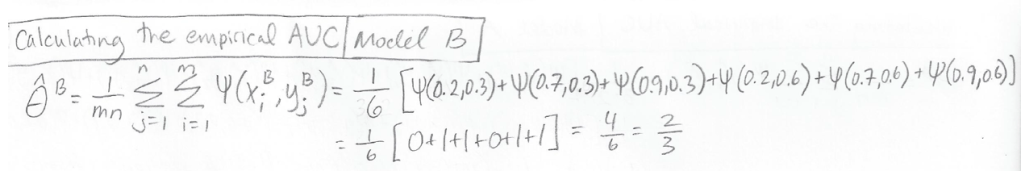 Calculating the empirical AUC | Model B
θ̂^B = 1/mn Σ_{j=1}^{n} Σ_{i=1}^{m} ψ(x_i^B, y_j^B) = 1/6 [ψ(0.2,0.3)+ψ(0.7,0.3)+ψ(0.9,0.3)+ψ(0.2,0.6)+ψ(0.7,0.6)+ψ(0.9,0.6)]
= 1/6 [0+1+1+0+1+1] = 4/6 = 2/3